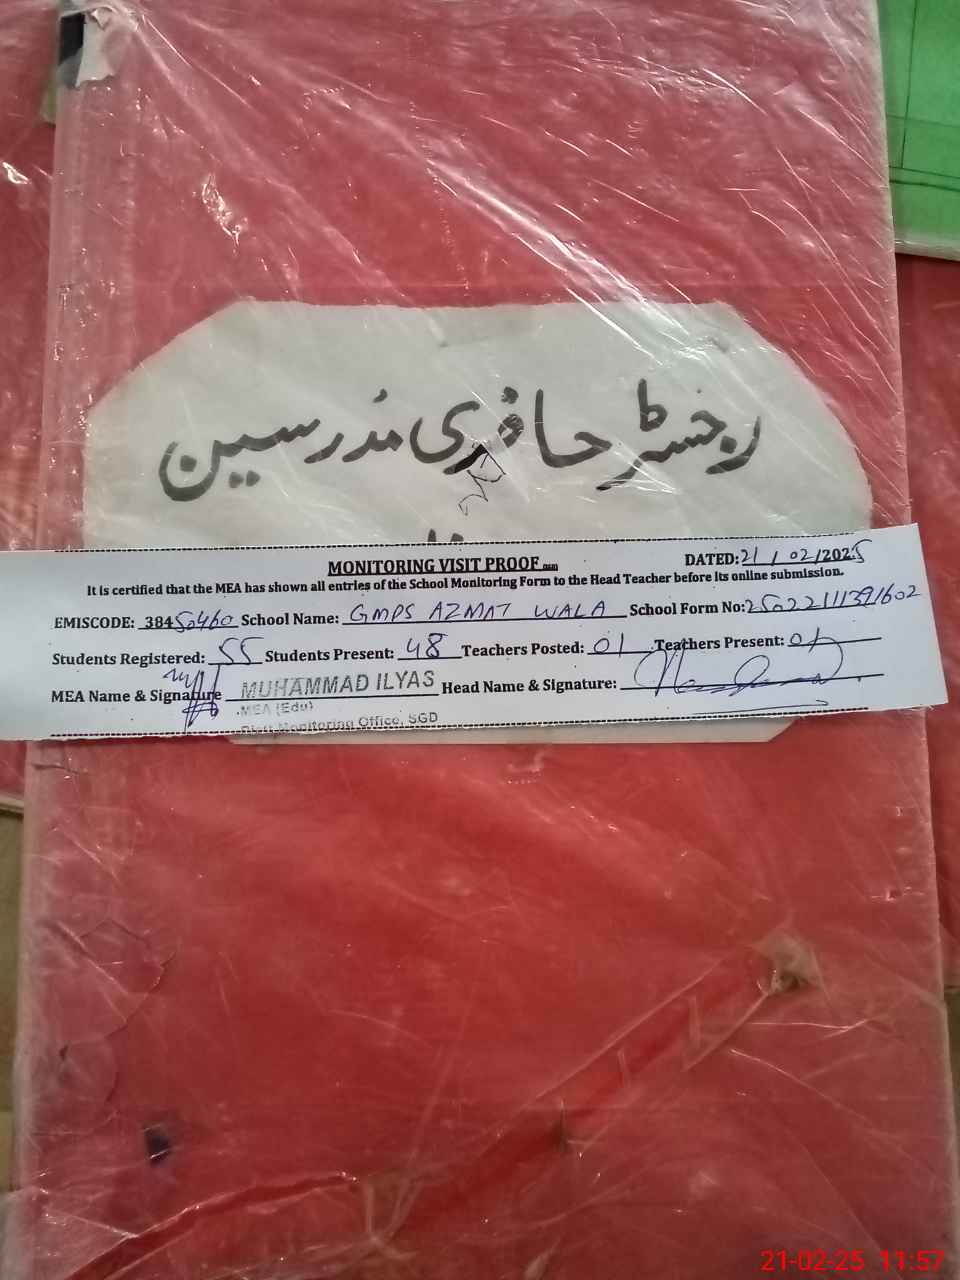 رجسٹر حاضری مدرسین
MONITORING VISIT PROOF
DATED: 21/02/2025
It is certified that the MEA has shown all entries of the School Monitoring Form to the Head Teacher before its online submission.
EMISCODE: 38450460 School Name: GMPS AZMAT WALA School Form No: 25022111391602
Students Registered: 55 Students Present: 48 Teachers Posted: 01 Teachers Present: 01
MEA Name & Signature MUHAMMAD ILYAS Head Name & Signature:
MEA (Edu)
Monitoring Office, SGD
21-02-25 11:57